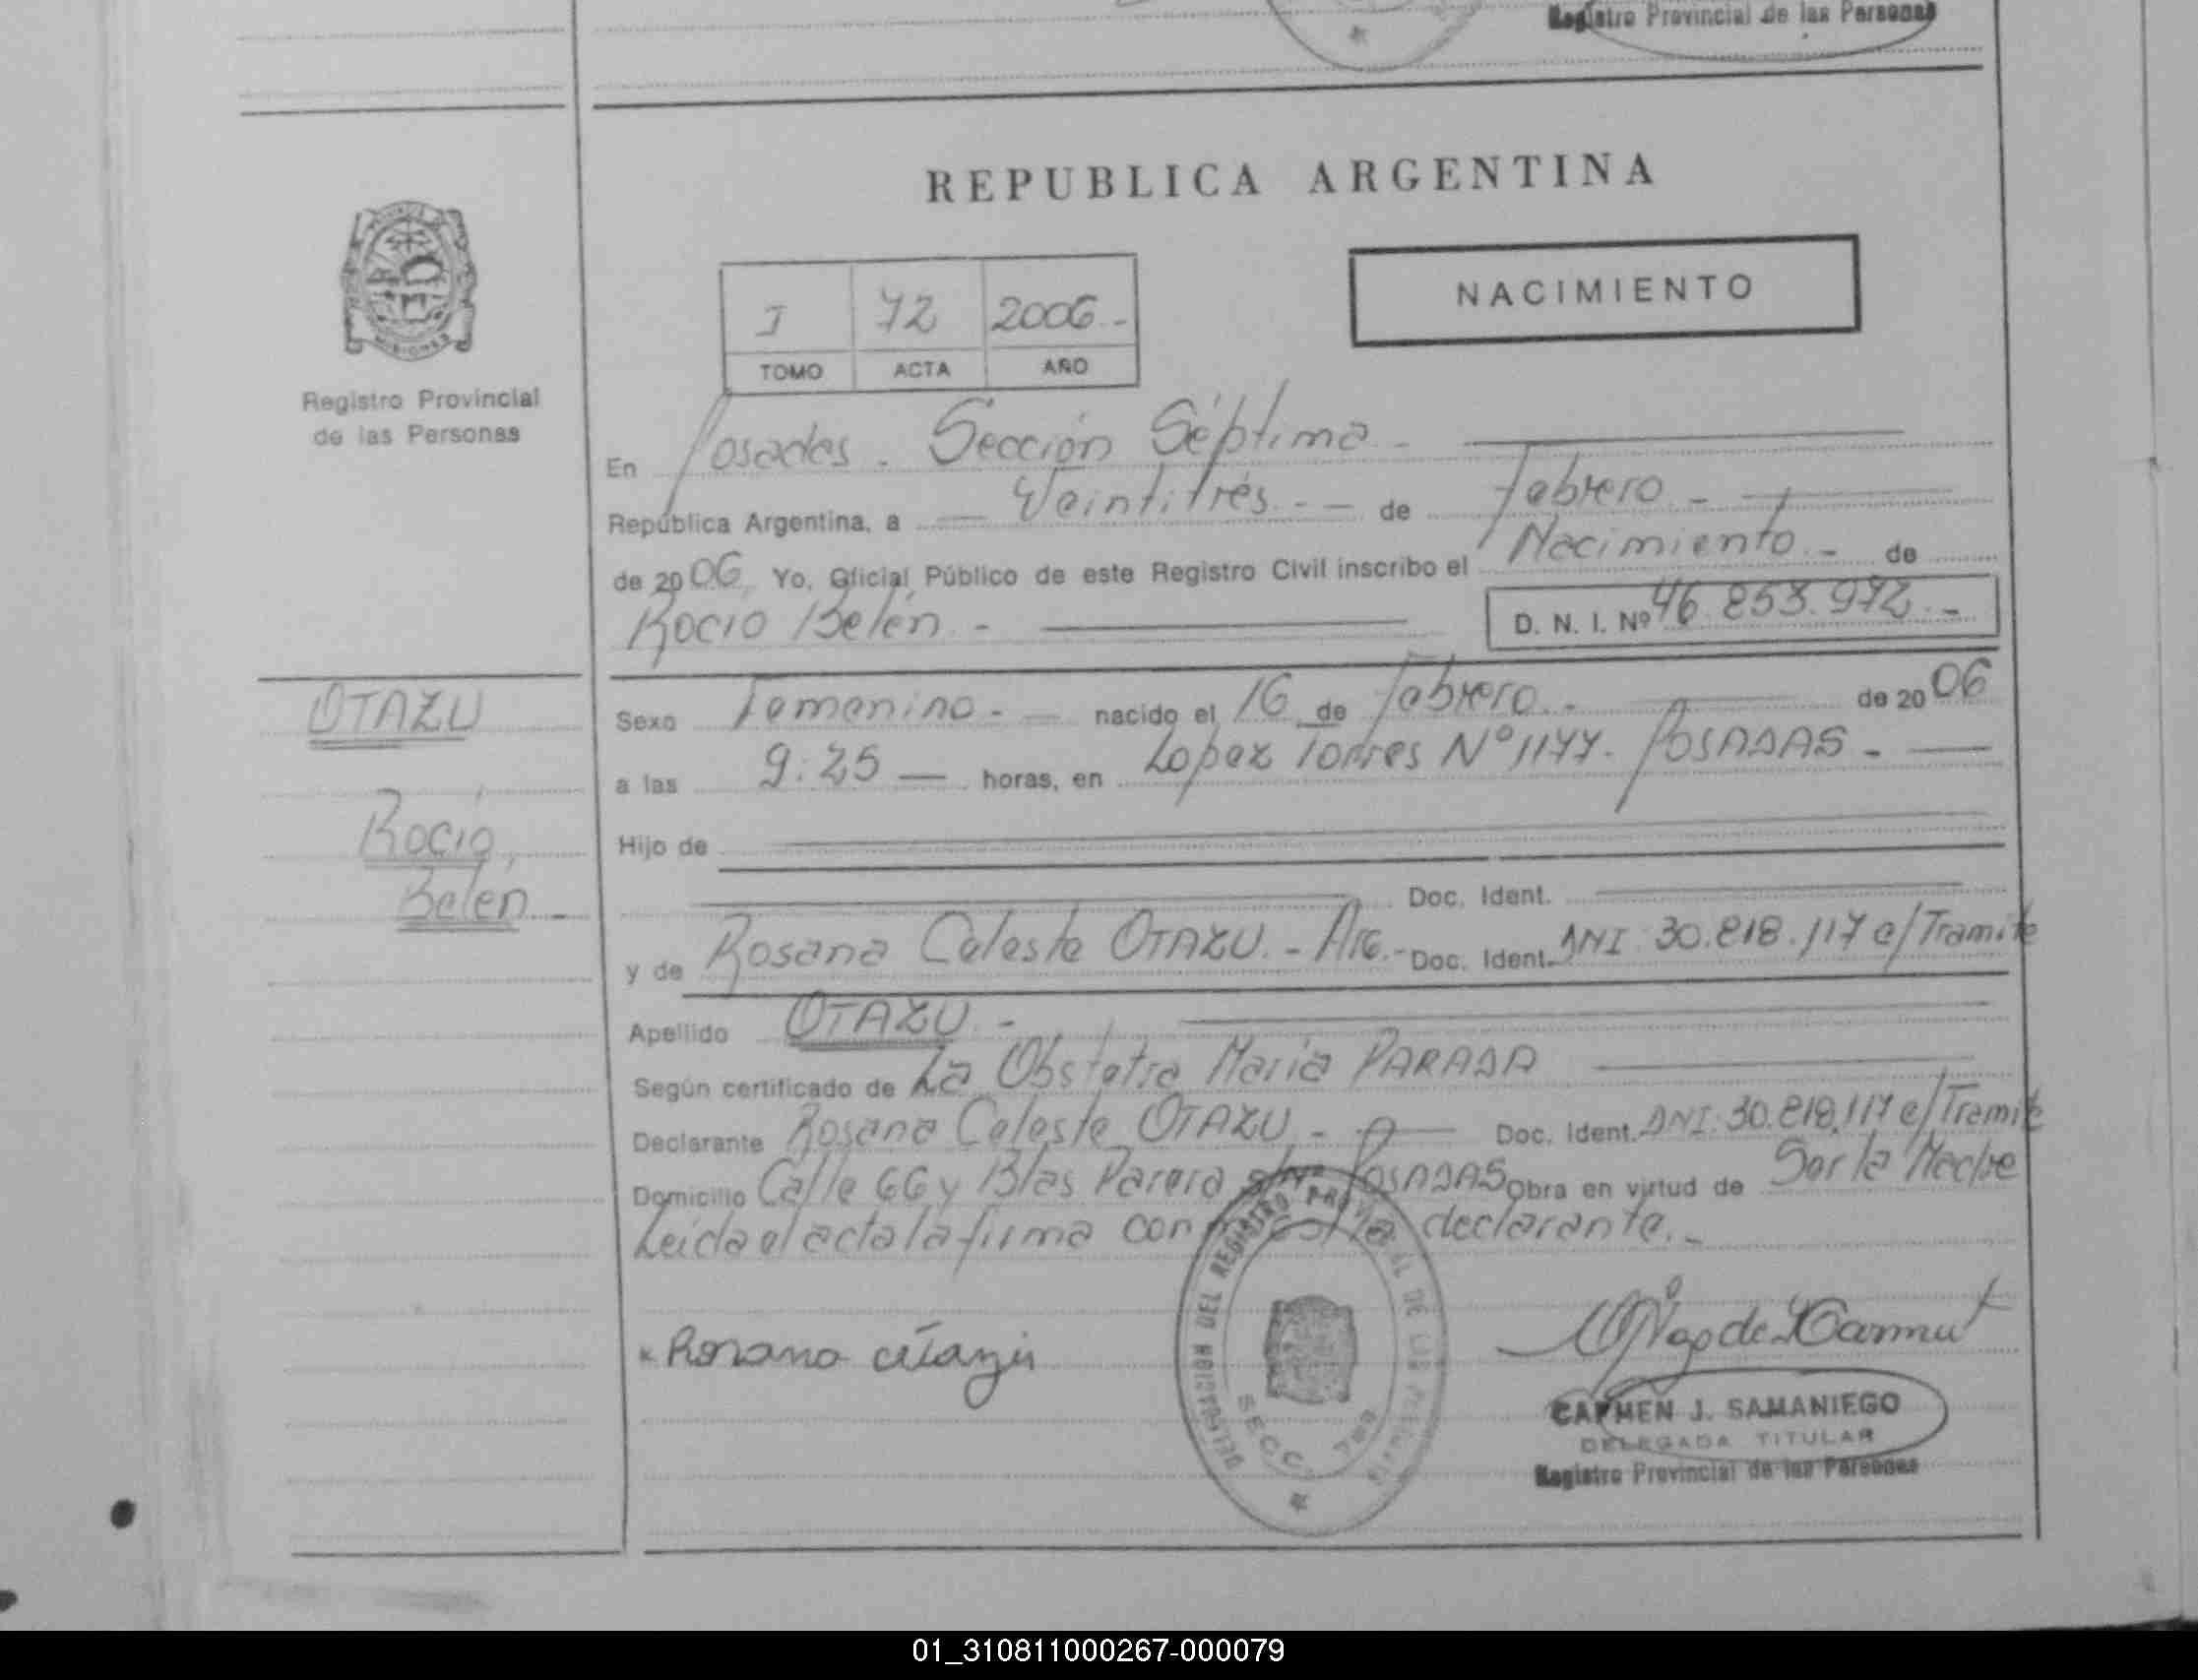 Registro Provincial de las Personas
REPUBLICA ARGENTINA
MISIONES
Registro Provincial
de las Personas
I 72 2006.-
TOMO ACTA AÑO
NACIMIENTO
En Posadas. Sección Séptima.-
República Argentina, a Veintitrés.- de febrero.-
de 2006, Yo, Oficial Público de este Registro Civil inscribo el Nacimiento.- de
Rocio Belén.- D. N. I. Nº 46.853.972.-
OTAZU
Rocio,
Belén.-
Sexo Femenino.- nacido el 16 de febrero.- de 2006
a las 9:25 horas, en Lopez Torres Nº 1177. POSADAS.-
Hijo de
Doc. Ident.
y de Rosana Celeste OTAZU.- Arg.- Doc. Ident. DNI 30.818.117 e/Tramite
Apellido OTAZU.-
Según certificado de La Obstetra Maria PARADA
Declarante Rosana Celeste OTAZU.- Doc. Ident. DNI: 30.818.117 e/Tramite
Domicilio Calle 66 y Blas Parera s/nº POSADAS Obra en virtud de Ser la Madre
Leída el acta la firma conmigo la declarante.-
DELEGACION DEL REGISTRO PROVINCIAL DE LAS PERSONAS
SECC. 7ma
Rosana otazu
CARMEN J. SAMANIEGO
DELEGADA TITULAR
Registro Provincial de las Personas
01_310811000267-000079